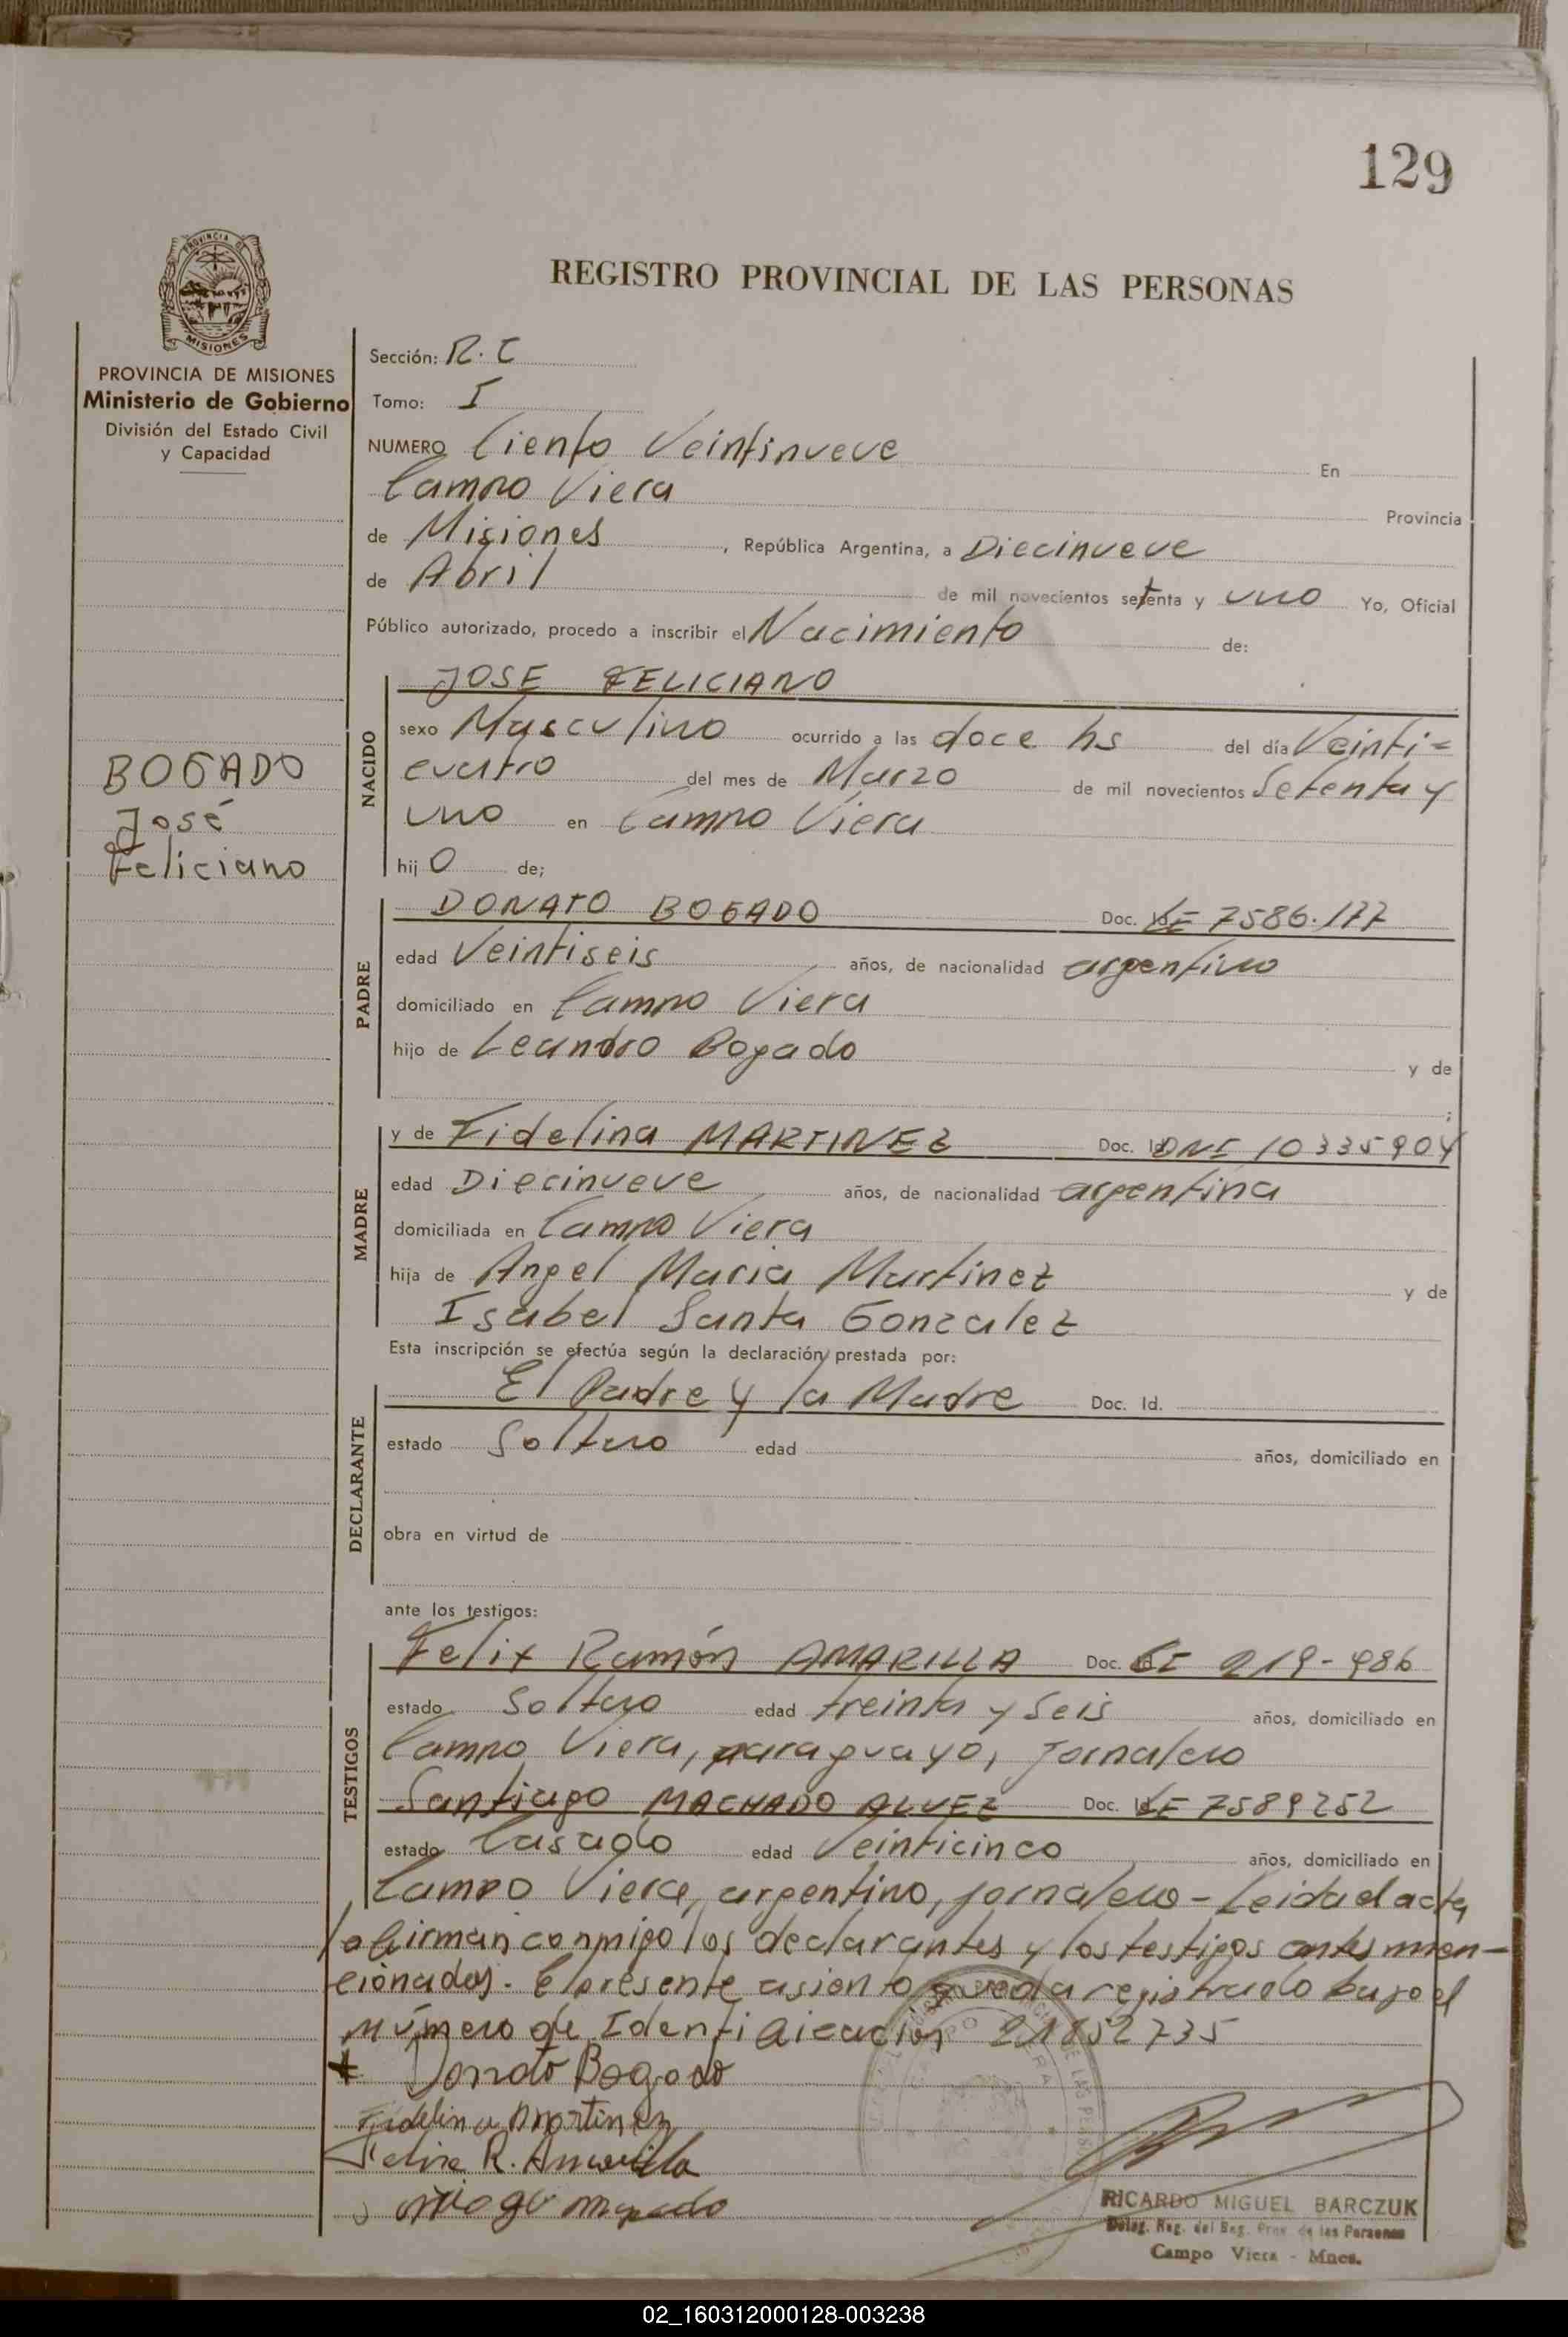 129
PROVINCIA DE
MISIONES
PROVINCIA DE MISIONES
Ministerio de Gobierno
División del Estado Civil
y Capacidad
BOGADO
José
Feliciano
REGISTRO PROVINCIAL DE LAS PERSONAS
Sección: R. C
Tomo: I
NUMERO Ciento Veintinueve En
Campo Viera Provincia
de Misiones, República Argentina, a Diecinueve
de Abril de mil novecientos setenta y uno Yo, Oficial
Público autorizado, procedo a inscribir el Nacimiento de:
NACIDO
JOSE FELICIANO
sexo Masculino ocurrido a las doce hs del día Veinti=
cuatro del mes de Marzo de mil novecientos Setenta y
uno en Campo Viera
hijo de;
PADRE
DONATO BOGADO Doc. LE 7586.177
edad Veintiseis años, de nacionalidad argentino
domiciliado en Campo Viera
hijo de Leandro Bogado y de
;
MADRE
y de Fidelina MARTINEZ Doc. DNI 10335904
edad Diecinueve años, de nacionalidad argentina
domiciliada en Campo Viera
hija de Angel Maria Martinez y de
Isabel Santa Gonzalez
Esta inscripción se efectúa según la declaración prestada por:
DECLARANTE
El Padre y la Madre Doc. Id.
estado Soltero edad años, domiciliado en
obra en virtud de
ante los testigos:
TESTIGOS
Felix Ramón AMARILLA Doc. CI 219-986
estado Soltero edad treinta y seis años, domiciliado en
Campo Viera, paraguayo, jornalero
Santiago MACHADO ALVEZ Doc. LE 7589252
estado Casado edad Veinticinco años, domiciliado en
Campo Viera, argentino, jornalero - Leida el acta
la firman conmigo los declarantes y los testigos antes men-
cionados. El presente asiento queda registrado bajo el
número de Identificación 21852735
Donato Bogado
Fidelina Martinez
Felix R. Amarilla
RICARDO MIGUEL BARCZUK
Deleg. Reg. del Reg. Prov. de las Personas
Campo Viera - Mnes.
02_160312000128-003238